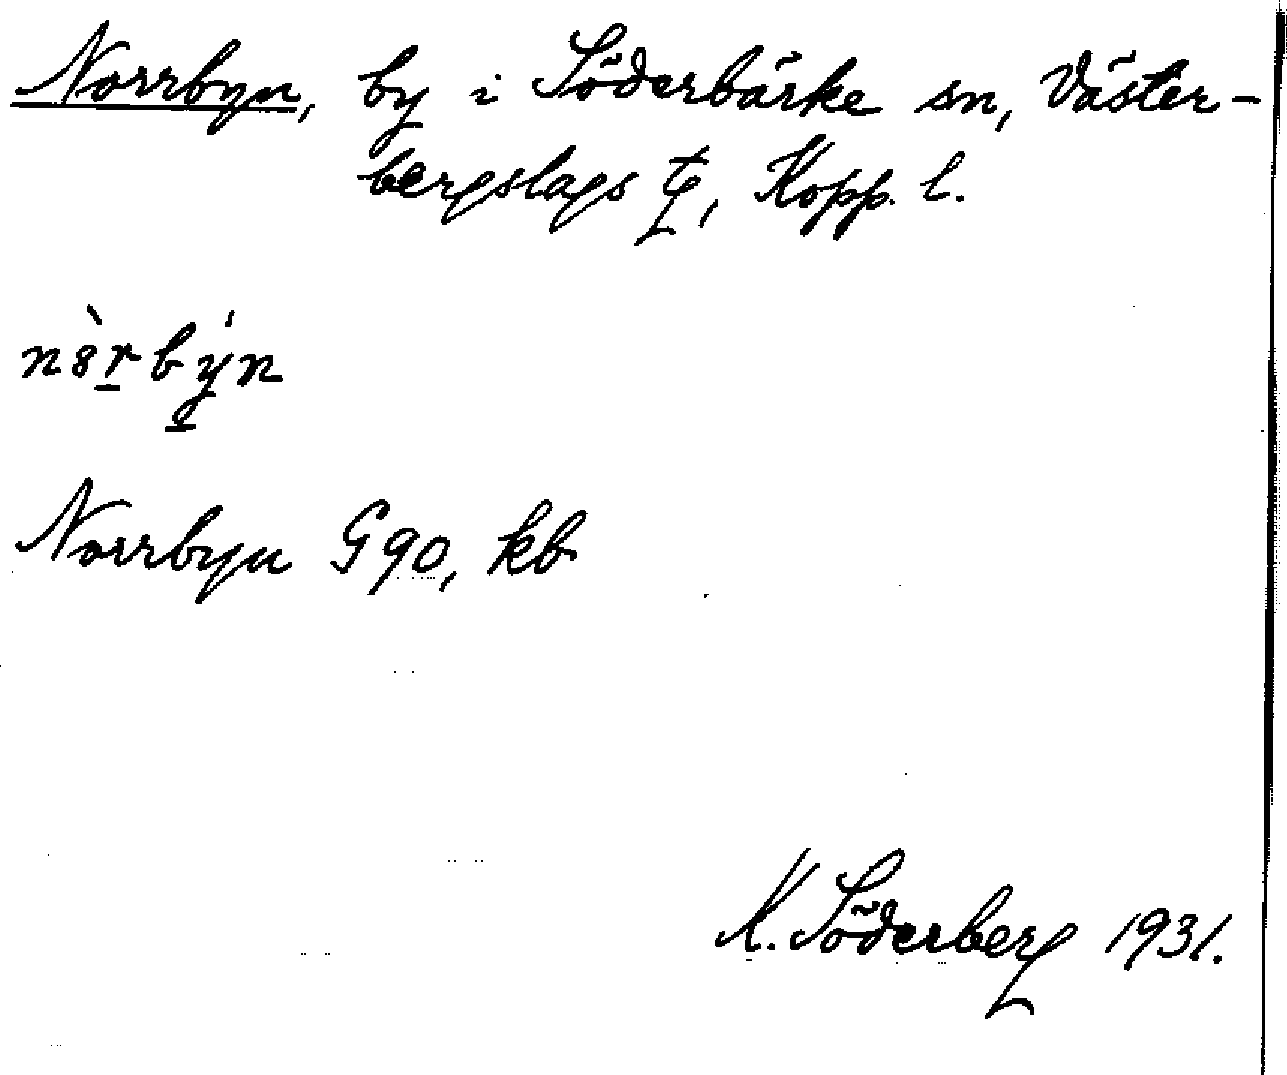 Norrbyn, by i Söderbärke sn, Väster-
bergslags tg, Kopp. l.
n8̀rbýn
Norrbyn G90, kb
K. Söderberg 1931.